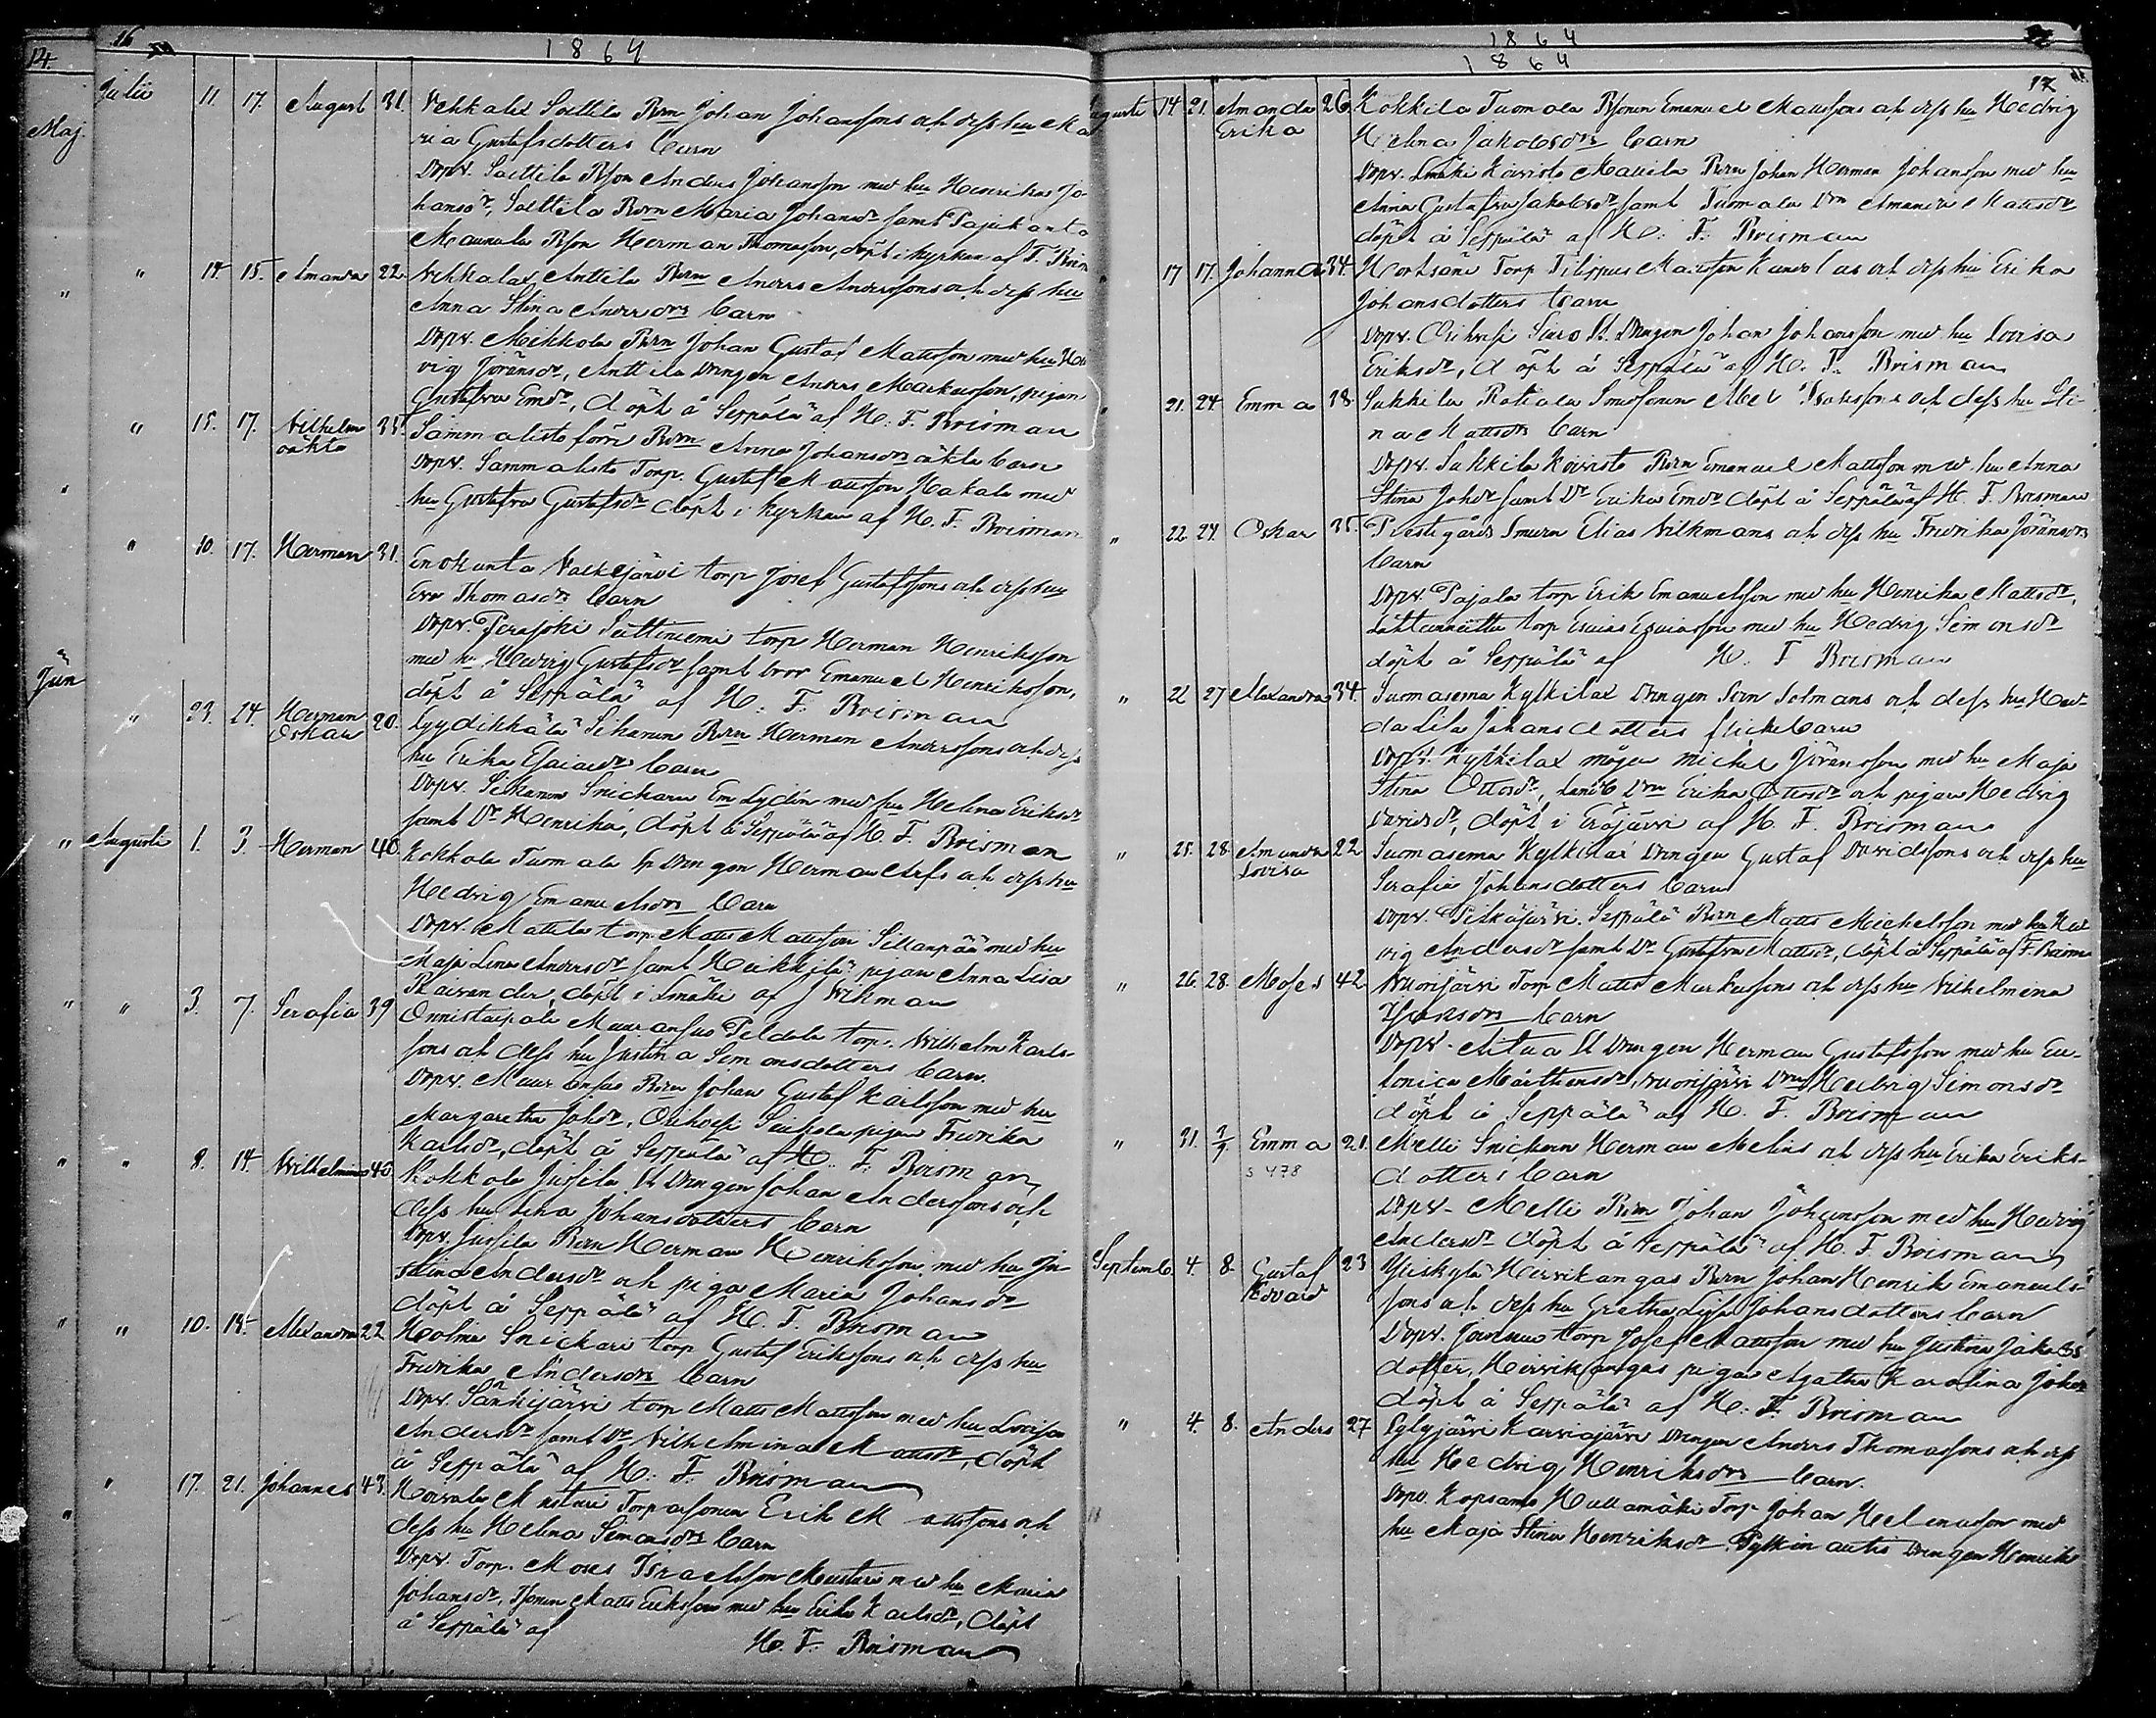 14.
16
1864
Maj.
Julii 11. 17. August 31. Vehkalax Soittila Bdn Johan Johanssons och dess hu Ma
ria Gustafsdotters barn
Dopv. Soittila Bson Anders Johansson med hu Henrika Jo
hansdr, Soittila Bdn Maria Johansdr samt Pajukanta
Maunula Bson Herman Thomasson, döpt i kyrkan af F. Brism
" 14. 15. Amanda 22. Vehkalax Anttila Bdn Anders Anderssons och dess hu
Anna Stina Andersdrs barn
Dopv. Mikkola Bdn Johan Gustaf Mattsson med hu Hed
vig Göransdr, Anttila Drängen Anders Markusson, pigan
Gustafva Emdr, döpt å Seppälä af H. F. Brisman
" 15. 17. Vilhelm 35. Sammaljsto förra Bdn Anna Johansdrs oäkta barn
oäkta
Dopv. Sammaljsto Torp. Gustaf Mattsson Hakala med
hu Gustafva Gustafsdr döpt i kyrkan af H. F. Brisman
" 10. 17. Herman 31. Enokunta Valkejärvi torp Josef Gustafssons och dess hu
Eva Thomasdrs barn
Dopv. torp Herman Henriksson
med hu Hedvig Gustafsdr samt bror Emanuel Henriksson,
döpt å Seppälä af H. F. Brisman
Jun
" 23. 24. Herman 20. Lyydikkälä Sikanen Bdn Herman Anderssons och dess
Oskar
hu Erika Esaiaedr barn
Dopv. Sikanen Snickaren Em Lydén med hu Helena Eriksdr
samt Dr Henrika, döpt å Seppälä af H. F. Brisman
" Augusti 1. 3. Herman 40. Kokkola Tuomala Drängen Herman och dess hu
Hedvig Emanuelsdrs barn
Dopv. Mattila torp. Matts Mattsson Sillanpää med hu
Maja Lena Andersdr samt Heikkilä pigan Anna Lisa
döpt i af J Wikman
" " 3. 7. Serafia 39 Onnistaipale torp. Wilhelm Karls
sons och dess hu Justina Simonsdotters barn.
Dopv. Bdn Johan Gustaf Karlsson med hu
Margaretha Johdr, Orihvesi pigan Fredrika
Karlsdr, döpt å Seppälä af H. F. Brisman
" " 8. 14. Wilhelmina 40 Kokkola Jussila Drängen Johan Anderssons och
dess hu Lena Johansdotters barn
Dopv. Jussila Bdn Herman Henriksson med hu Ju
stina Andersdr och pigan Maria Johansdr
döpt å Seppälä af H. F. Brisman
" " 10. 14. Alexandra 22 Holma Snickare torp Gustaf Erikssons och dess hu
Fredrika Andersdrs barn
Dopv. Särkijärvi torp Matts Mattsson med hu Lovisa
Andersdr samt Dr Vilhelmina Mattsdr, döpt
å Seppälä af H. F. Brisman
" " 17. 21. Johannes 43. Torparsonen Erik Mattssons och
dess hu Helena Simonsdrs barn
Dopv. Torp. Moses Israelsson med hu Maria
Johansdr, Matts Eriksson med hu Erika Karlsdr, döpt
å Seppälä af
H. F. Brisman
1864
1864
17
Augusti 14 21. Amanda 26. Kokkila Tuomola Bsonen Emanuel Mattssons och dess hu Hedvig
Erika
Helena Jakobsdrs barn
Dopv. Koivisto Bdn Johan Herman Johansson med hu
Anna Gustafva Jakobsdr samt Tuomala Drn Amanda Mattsdr
döpt å Seppälä af H. F. Brisman
" 17 17. Johanna 34. Torp Filippus Mattsson och dess hu Erika
Johansdotters barn
Dopv. Orihvesi Drängen Johan Johansson med hu Lovisa
Eriksdr, döpt å Seppälä af H. F. Brisman
" 21. 24. Emma 38. Sukkila och dess hu Sti
na Mattsdrs barn
Dopv. Sukkila Koivisto Bdn Emanuel Mattsson med hu Anna
Stina Johdr samt Dr Erika Emdr döpt å Seppälä af H. F. Brisman
" 22. 24. Oskar 35. Prestgårds Smeden Elias Vikmans och dess hu Fredrika Göransdrs
barn
Dopv. Pajala torp Erik Emanuelsson med hu Henrika Mattsdr,
torp Esaias Esaiasson med hu Hedvig Simonsdr
döpt å Seppälä af H. F. Brisman
" 22 27 Alexandra 34. Suomasema Kylkilax Drängen Solmans och dess hu Hed
da Lisa Johansdotters flickebarn
Dopv. Kylkilax mågen Michel Göransson med hu Maja
Stina Ottosdr, samt Drn Erika Ottosdr och pigan Hedvig
Davidsdr, döpt i Eräjärvi af H. F. Brisman
" 25. 28. Amanda 22 Suomasema Kylkilax Drängen Gustaf Davidssons och dess hu
Lovisa
Serafia Johansdotters barn
Dopv. Pitkäjärvi Seppälä Bdn Matts Michelsson med hu Hed
vig Andersdr samt Dr Gustafva Mattsdr, döpt å Seppälä af F. Brisman
" 26. 28. Moses 42 Vuorijärvi Torp Matts Markussons och dess hu Vilhelmina
barn
Dopv. Drängen Herman Gustafsson med hu Eu
fonica Mårthensdr, Vuorijärvi Drn Hedvig Simonsdr
döpt å Seppälä af H. F. Brisman
" 31. Emma 21. Melli Snickaren Herman Melins och dess hu Erika Eriks
s 478
dotters barn
Dopv. Melli Bdn Johan Johansson med hu Hedvig
Andersdr döpt å Seppälä af H. F. Brisman
Septemb. 4. 8. Gustaf 23 Yliskylä Hirvikangas Bdn Johan Henrik Emanuels
Edvard
sons och dess hu Gretha Lisa Johansdotters barn
Dopv. torp Josef Mattsson med hu Justina Jakobs
dotter, Hirvikangas pigan Agatha Karolina Johdr
döpt å Seppälä af H. F. Brisman
" 4. 8. Anders 27 Karviajärvi Drängen Anders Thomassons och dess
hu Hedvig Henriksdrs barn.
Dopv. Kopsamo Hallamäki Torp Johan Helenasson med
hu Maja Stina Henriksdr Drängen Henrik